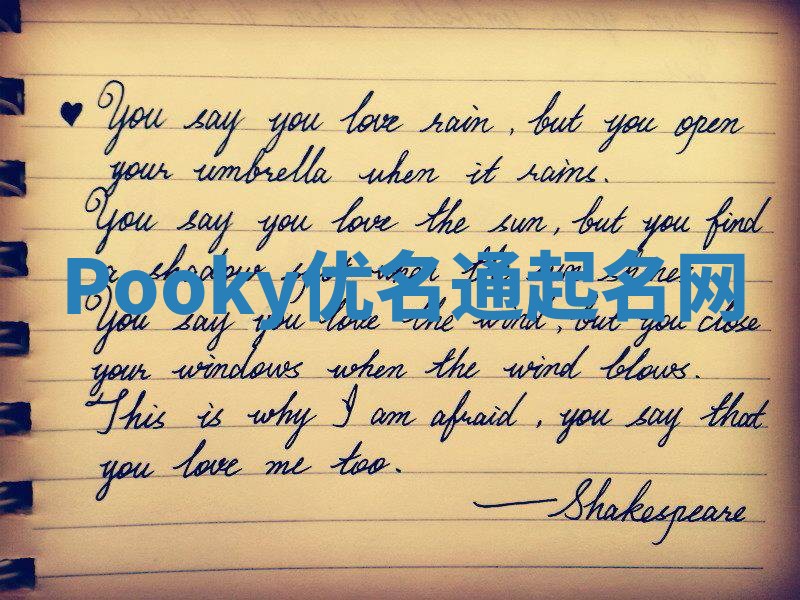 You say you love rain, but you open
your umbrella when it rains.
You say you love the sun, but you find
a shadow spot when the sun shines.
Pooky优名通起名网
You say you love the wind, but you close
your windows when the wind blows.
This is why I am afraid, you say that
you love me too.
—Shakespeare